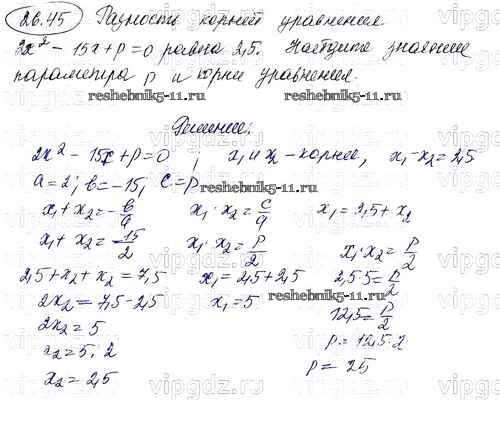 26.45 Разность корней уравнения
2x² - 15x + p = 0 равна 2,5. Найдите значение
параметра p и корни уравнения.
reshebnik5-11.ru reshebnik5-11.ru
Решение:
2x² - 15x + p = 0 ; x₁ и x₂ - корни, x₁ - x₂ = 2,5
a = 2; b = -15; c = p
reshebnik5-11.ru
x₁ + x₂ = -b/a x₁ · x₂ = c/a x₁ = 2,5 + x₂
x₁ + x₂ = 15/2 x₁ · x₂ = p/2 x₁ · x₂ = p/2
2,5 + x₂ + x₂ = 7,5 x₁ = 2,5 + 2,5 2,5 · 5 = p/2
2x₂ = 7,5 - 2,5 x₁ = 5 12,5 = p/2
reshebnik5-11.ru
2x₂ = 5 p = 12,5 · 2
x₂ = 5 : 2 p = 25
x₂ = 2,5
vipgdz.com